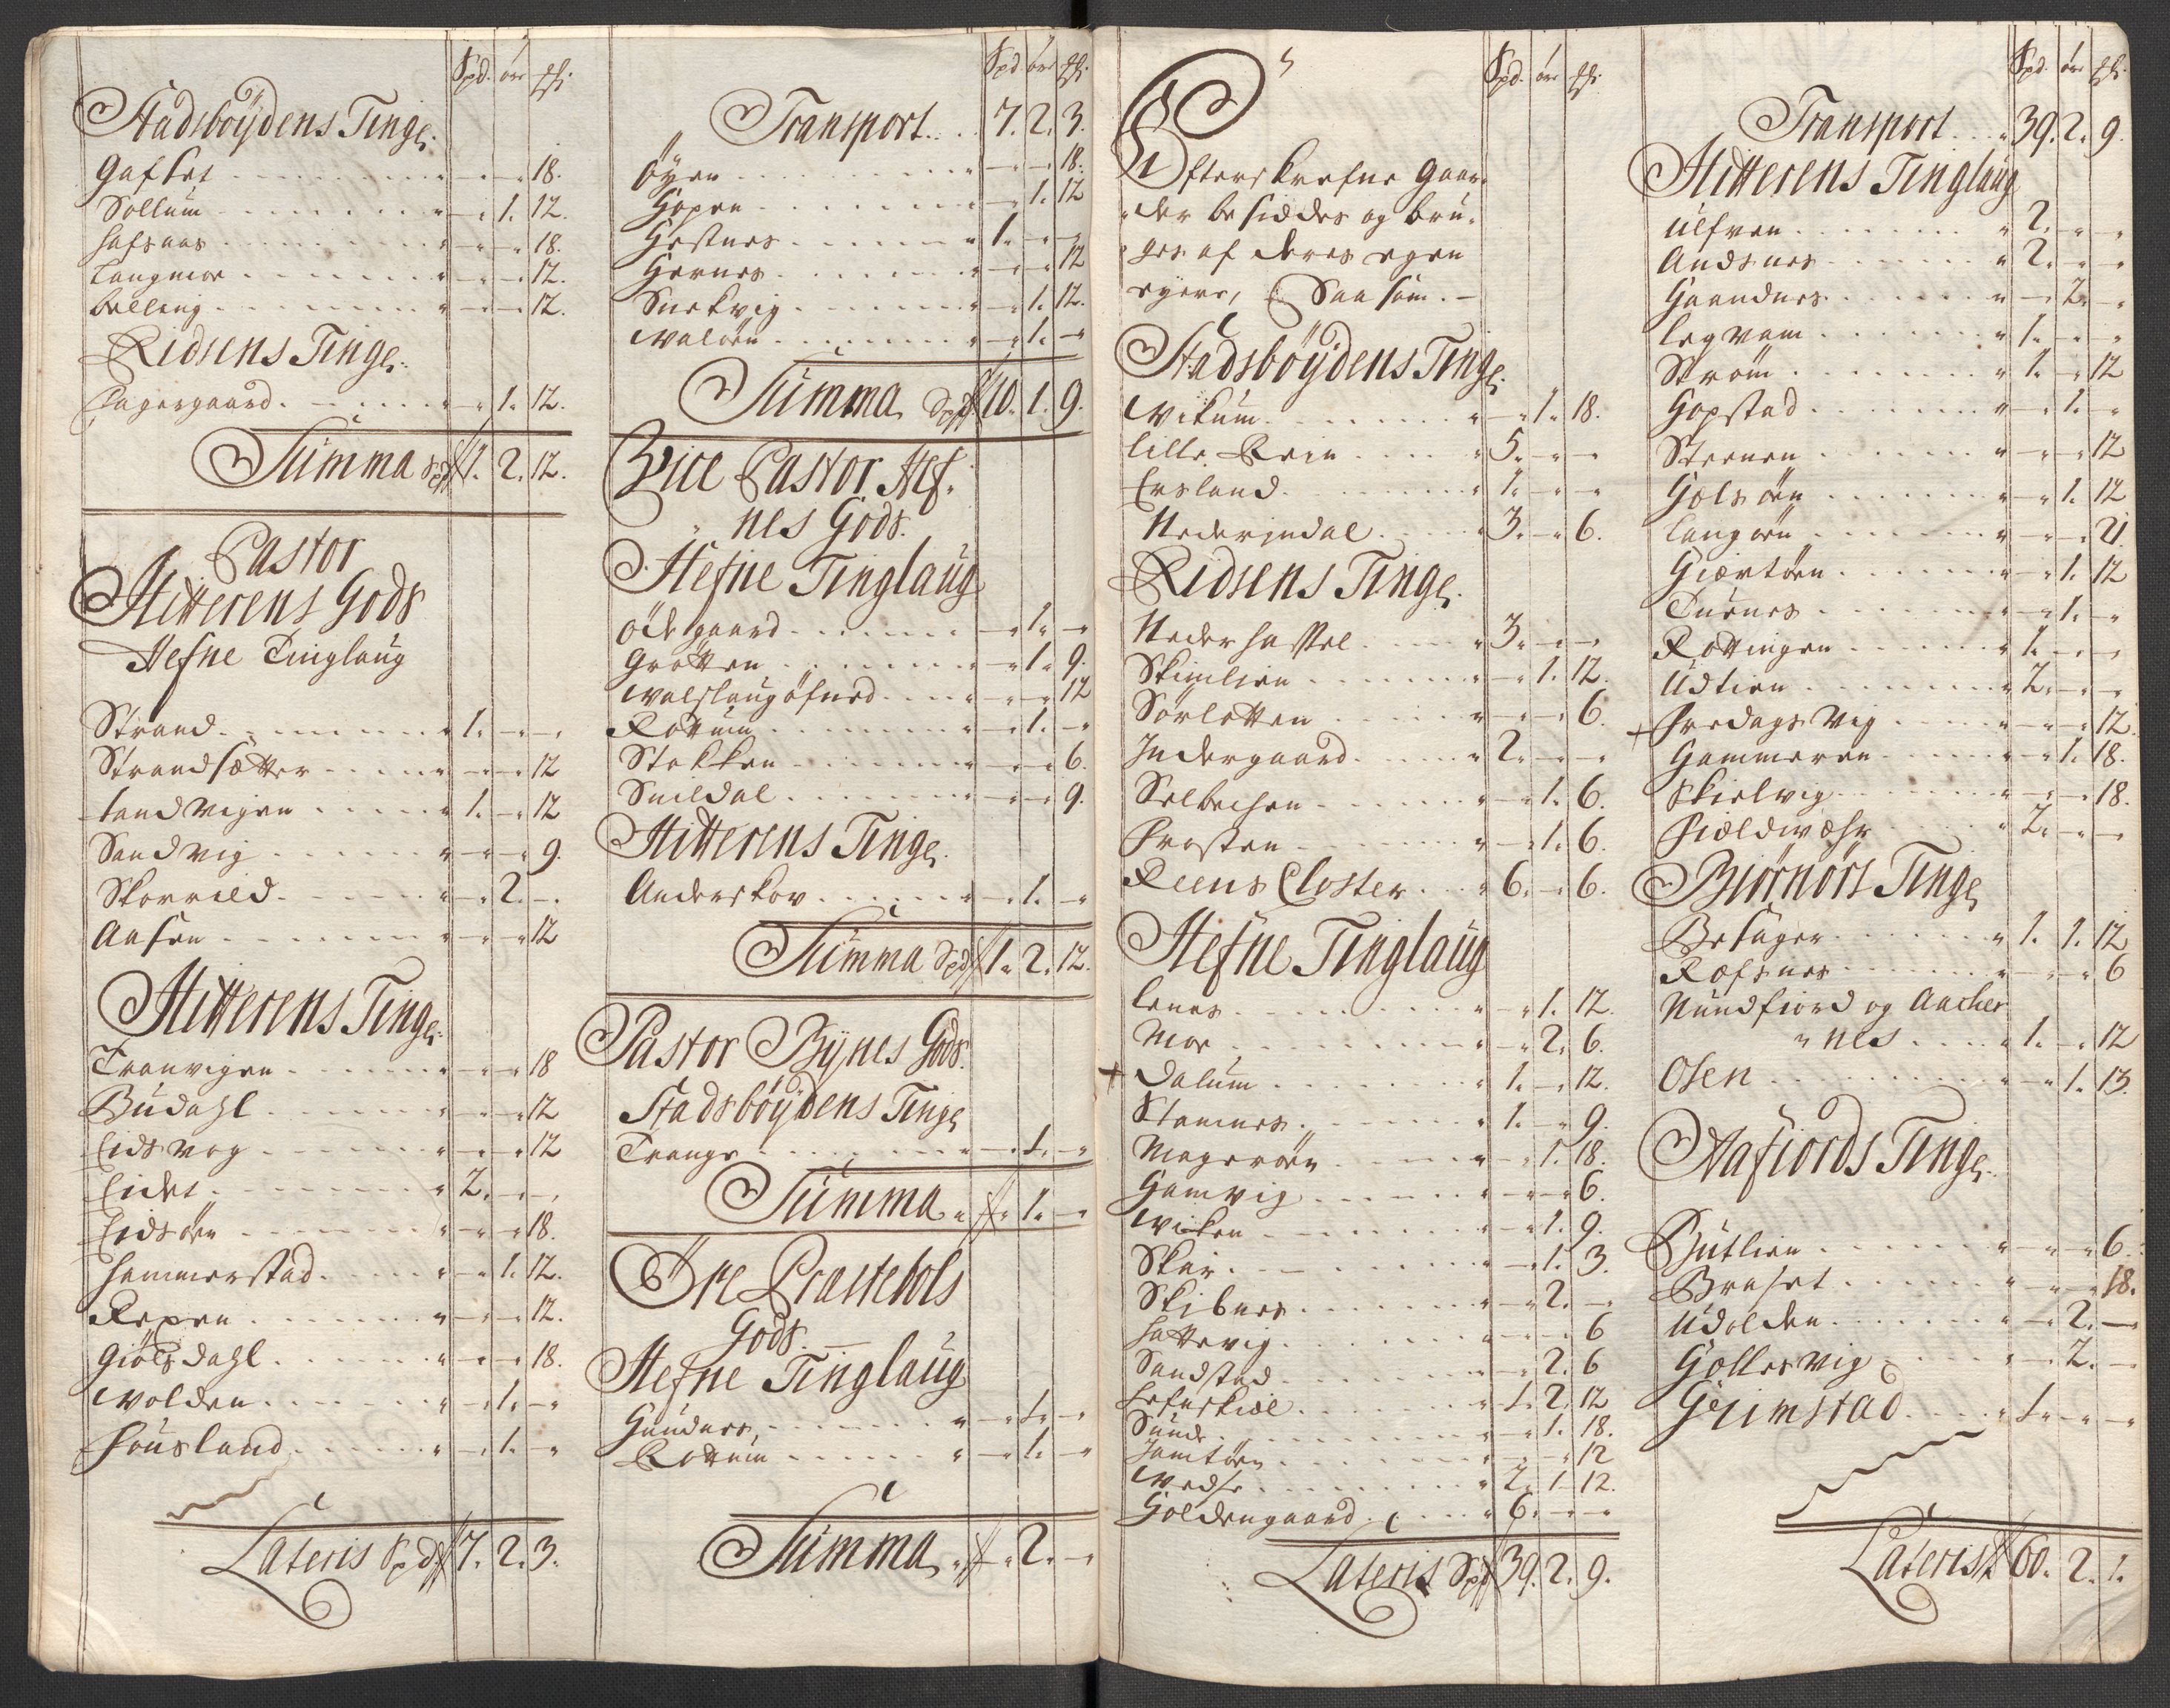 Spd. ore
Stadsböydens Tinge.
Gafket " - " - " 18.
Sollum " - " 1. 12.
Hafsaas " - " - " 18.
Langmoe " - " - " 12.
Belling " - " - " 12.
Ridsens Tinge.
Fagergaard " - " 1. 12.
Summa Spd 1. 2. 12.
Pastor
Hitterens Gods
Hefne Tinglaug
Strand " 1. - " - "
Strandsætter " - " - " 12
Landvigen " 1. - " 12
Sandvig " - " - " 9.
Skorrild " - " 2. - "
Aasen " - " - " 12
Hitterens Tinge.
Tranvigen " - " - " 18
Budahl " - " - " 12
Eidsvog " - " - " 12
Eidet " 2. - " - "
Eidsörn " - " - " 18.
Hammerstad " - " 1. 12.
Repen " - " - " 12.
Giölsdahl " - " - " 18.
Wolden " - " 1. - "
Housland " - " 1. - "
Lateris Spd 7. 2. 3.
Spd ore
Transport 7. 2. 3.
Öyen " - " - " 18.
Hopen " - " 1. 12
Hestnes " 1. - " - "
Hernes " - " - " 12
Snekvig " - " 1. 12.
Walöen " - " 1. - "
Summa Spd 10. 1. 9.
Vice Pastor Hef-
nes Gods.
Hefne Tinglaug
Ödegaard " - " 1. - "
Grotten " - " 1. 9.
Walslaugöfned " - " - " 12
Rottum " - " 1. - "
Stokken " - " - " 6.
Snildal " - " - " 9.
Hitterens Tinge.
Anderskov " - " 1. - "
Summa Spd 1. 2. 12.
Pastor Bÿnes Gods.
Stadsböydens Tinge
Trange " - " 1. - "
Summa " - " 1. - "
Öre Præstebols
Gods.
Hefne Tinglaug
Gundnes, " - " 1. - "
Rottum " - " 1. - "
Summa " - " 2. - "
Spd. ore
Efterskrefne Gaar-
der besiddes og bru-
ges af deres egen
eyere, Saasom. -
Stadsböydens Tinge.
Wikum " - " 1. 18.
Lille Rein " 5. - " - "
Ersland " 1. - " - "
Nederindal " 3. - " 6.
Ridsens Tinge.
Nederhassel " 3. - " - "
Skimlien " - " 1. 12.
Sörlotten " - " - " 6.
Indergaard " 2. - " - "
Selbechen " - " 1. 6.
Frosten " - " 1. 6.
Reens Closter " 6. - " 6.
Hefne Tinglaug
Lenes " - " 1. 12.
Moe " - " 2. 6.
+ Dalum " 1. - " 12.
Stamnes " 1. - " 9.
Mageröen " - " 1. 18.
Hamvig " - " - " 6.
Wiken " - " 1. 9.
Skar " - " 1. 3.
Skibnes " - " 2. - "
Hattevig " - " - " 6
Sandstad " - " 2. 6
Hefnskiel " 1. 2. 12
Sunde " - " 1. 18.
Jamtöen " - " - " 12
Wedse " 2. 1. 12.
Holdengaard " 6. - " - "
Lateris Spd 39. 2. 9.
Spd. ore
Transport 39. 2. 9.
Hitterens Tinglaug
Ulfven " 2. - " - "
Andsnes " 2. - " - "
Haandnes " - " 2. - "
Legvam " 1. - " - "
Ström " 1. - " 12
Hopstad " - " 1. - "
Steenen " - " - " 12
Holsöen " - " 1. 12
Langöen " - " - " 21.
Giærtöen " - " 1. 12
Tusnes " - " 1. - "
Rottingen " 1. - " - "
Udtien " 2. - " - "
+ Fredagsvig " - " - " 12.
Hammeren " - " 1. 18.
Skielvig " - " - " 18.
Fieldwehr " 2. - " - "
Biörnörs Tinge
Besager " 1. 1. 12
Rofsnes " - " - " 6
Nundfiord og Aacher
nes " 1. - " 12
Osen " - " 1. 13.
Aafiords Tinge.
Butlien " - " - " 6.
Braset " - " - " 18.
Udolden " - " 2. -
Hollesvig " - " 2. -
Grimstad " 1. - " - "
Lateris 60. 2. 1.